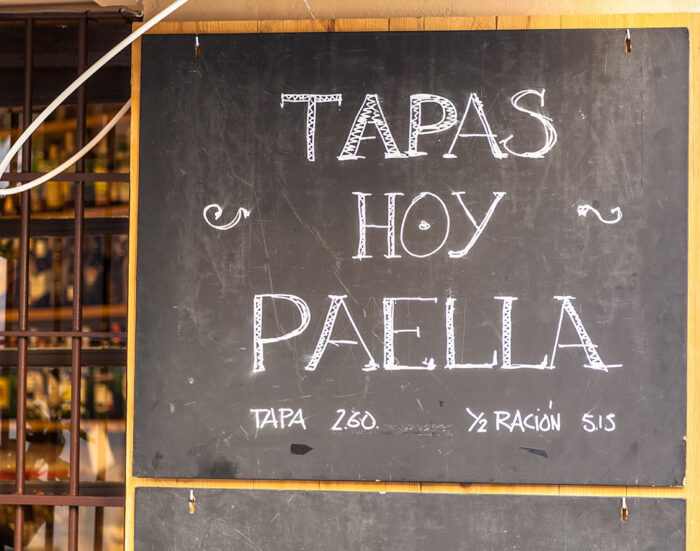 TAPAS
HOY
PAELLA
TAPA 2.60. ½ RACIÓN 5.15